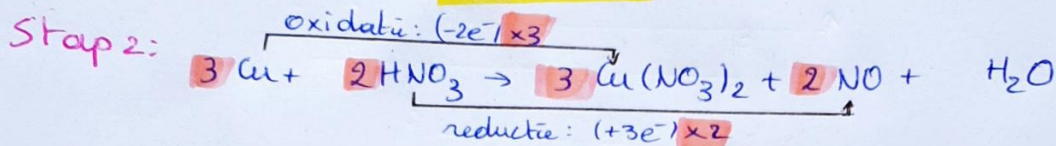 Stap 2:
oxidatie: (-2e⁻) ×3
3 Cu + 2 HNO₃ → 3 Cu(NO₃)₂ + 2 NO + H₂O
reductie: (+3e⁻) ×2